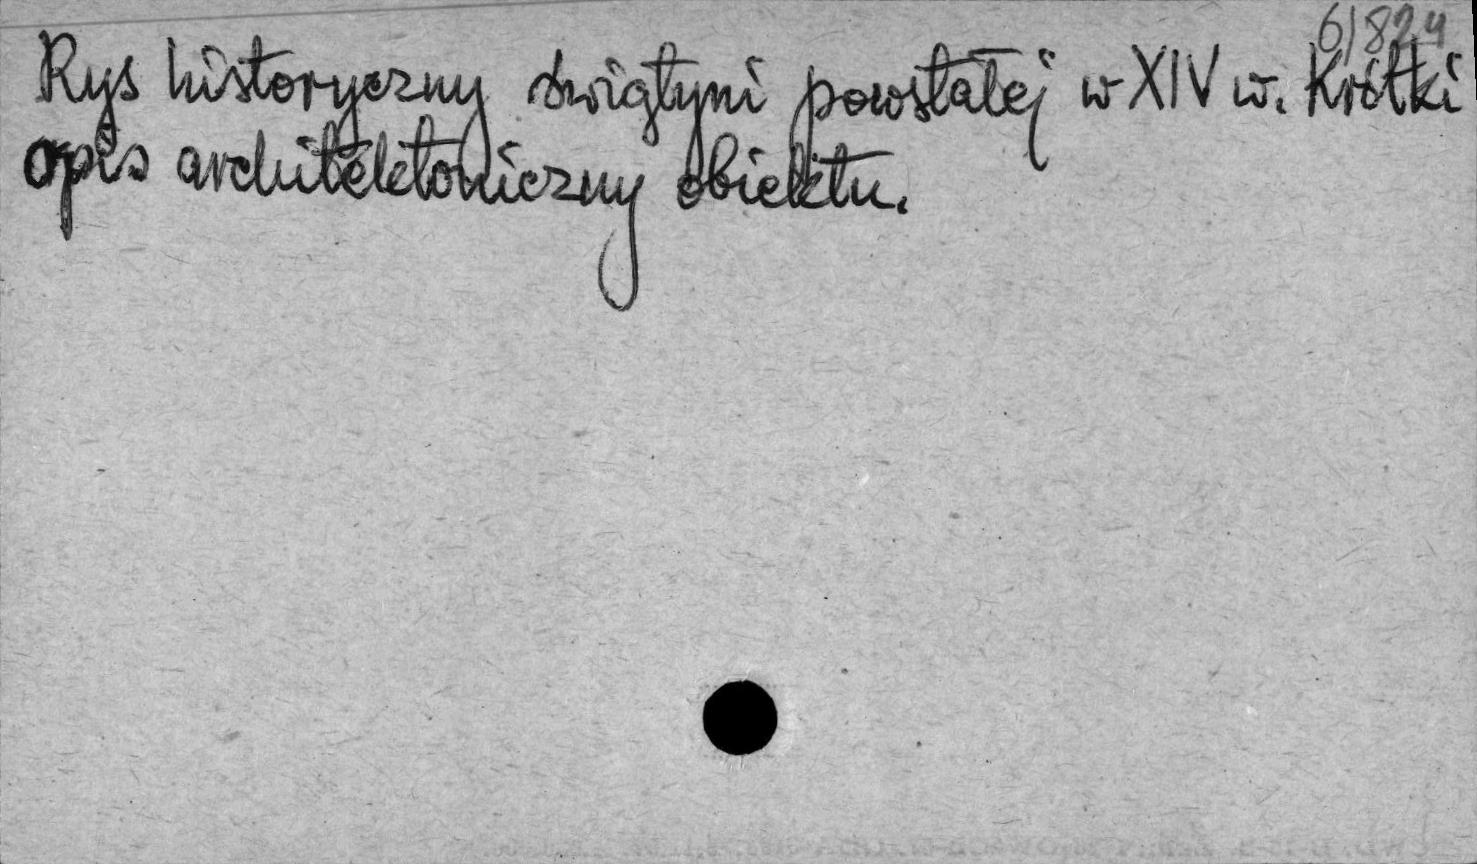 6/824
Rys historyczny świątyni powstałej w XIV w. Krótki
opis architektoniczny obiektu.